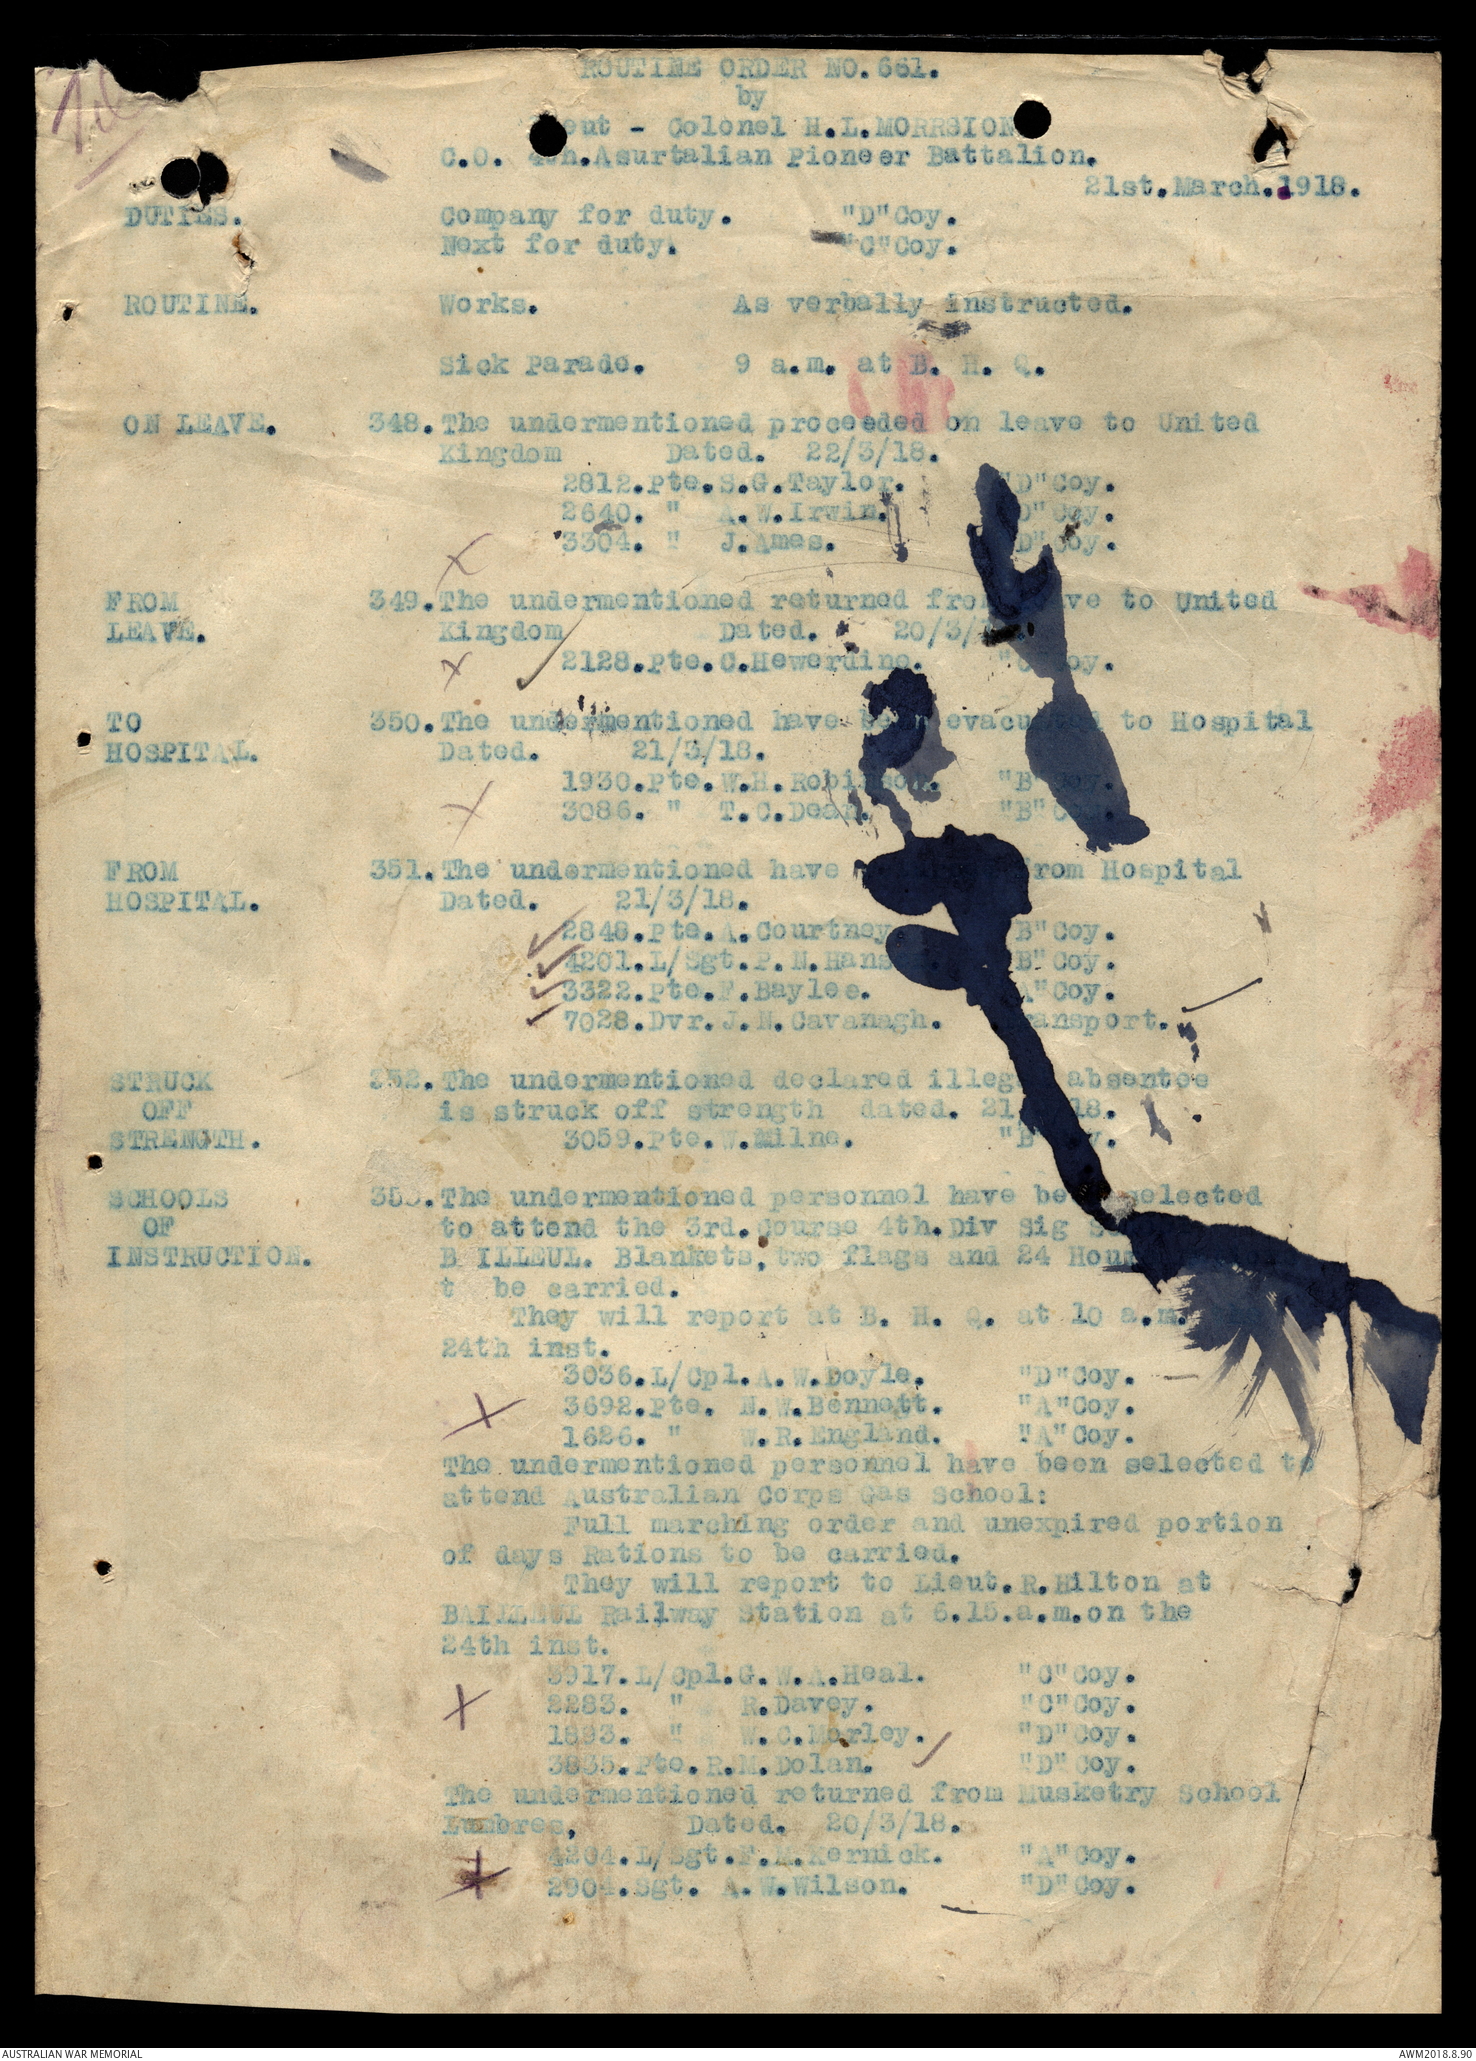 ROUTINE ORDER NO.661.
by
Lieut - Colonel H.L.MORRSION
C.O. 4th.Asurtalian Pioneer Battalion.
21st.March.1918.
DUTIES. Company for duty. "D"Coy.
Next for duty. "C"Coy.
ROUTINE. Works. As verbally instructed.
Sick Parade. 9 a.m. at B. H. Q.
ON LEAVE. 348.The undermentioned proceeded on leave to United
Kingdom Dated. 22/3/18.
2812.Pte.S.G.Taylor. "D"Coy.
2640. " A.W.Irwin. "D"Coy.
3304. " J.Ames. "D"Coy.
FROM 349.The undermentioned returned from leave to United
LEAVE. Kingdom Dated. 20/3/18.
2128.Pte.C.Hewerdine. "C"Coy.
TO 350.The undermentioned have been evacuated to Hospital
HOSPITAL. Dated. 21/3/18.
1930.Pte.W.H.Robinson. "B"Coy.
3086. " T.C.Dean. "B"Coy.
FROM 351.The undermentioned have from Hospital
HOSPITAL. Dated. 21/3/18.
2848.Pte.A.Courtney. "B"Coy.
4201.L/Sgt.P.N.Hans "B"Coy.
3322.Pte.F.Baylee. "A"Coy.
7028.Dvr.J.N.Cavanagh. Transport.
STRUCK 352.The undermentioned declared illegal absentee
OFF is struck off strength dated. 21/3/18.
STRENGTH. 3059.Pte.W.Milne. "B"Coy.
SCHOOLS 353.The undermentioned personnel have been selected
OF to attend the 3rd.Course 4th.Div Sig
INSTRUCTION. B ILLEUL. Blankets, two flags and 24 Hours
t be carried.
They will report at B. H. Q. at 10 a.m.
24th inst.
3036.L/Cpl.A.W.Doyle. "D"Coy.
3692.Pte. N.W.Bennett. "A"Coy.
1686. " W.R.England. "A"Coy.
The undermentioned personnel have been selected to
attend Australian Corps Gas School:
Full marching order and unexpired portion
of days Rations to be carried.
They will report to Lieut.R.Hilton at
BAILLEUL Railway Station at 6.15.a.m.on the
24th inst.
3917.L/Cpl.G.W.A.Heal. "C"Coy.
2283. " R.Davey. "C"Coy.
1893. " W.C.Morley. "D"Coy.
3835.Pte.R.M.Dolan. "D"Coy.
The undermentioned returned from Musketry School
Lumbres, Dated. 20/3/18.
4204.L/Sgt.F.M.Kernick. "A"Coy.
2904.Sgt. A.W.Wilson. "D"Coy.
AUSTRALIAN WAR MEMORIAL
AWM2018.8.90